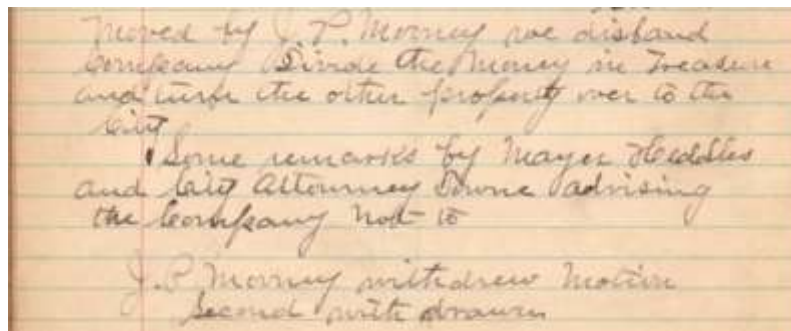 Moved by J. P. Morney we disband
Company Divide the Money in Treasure
and turn the other property over to the
City
Some remarks by Mayer Heddles
and City Attourney Downe advising
the Company Not to
J. P. Morney withdrew Motion
Second with drawn